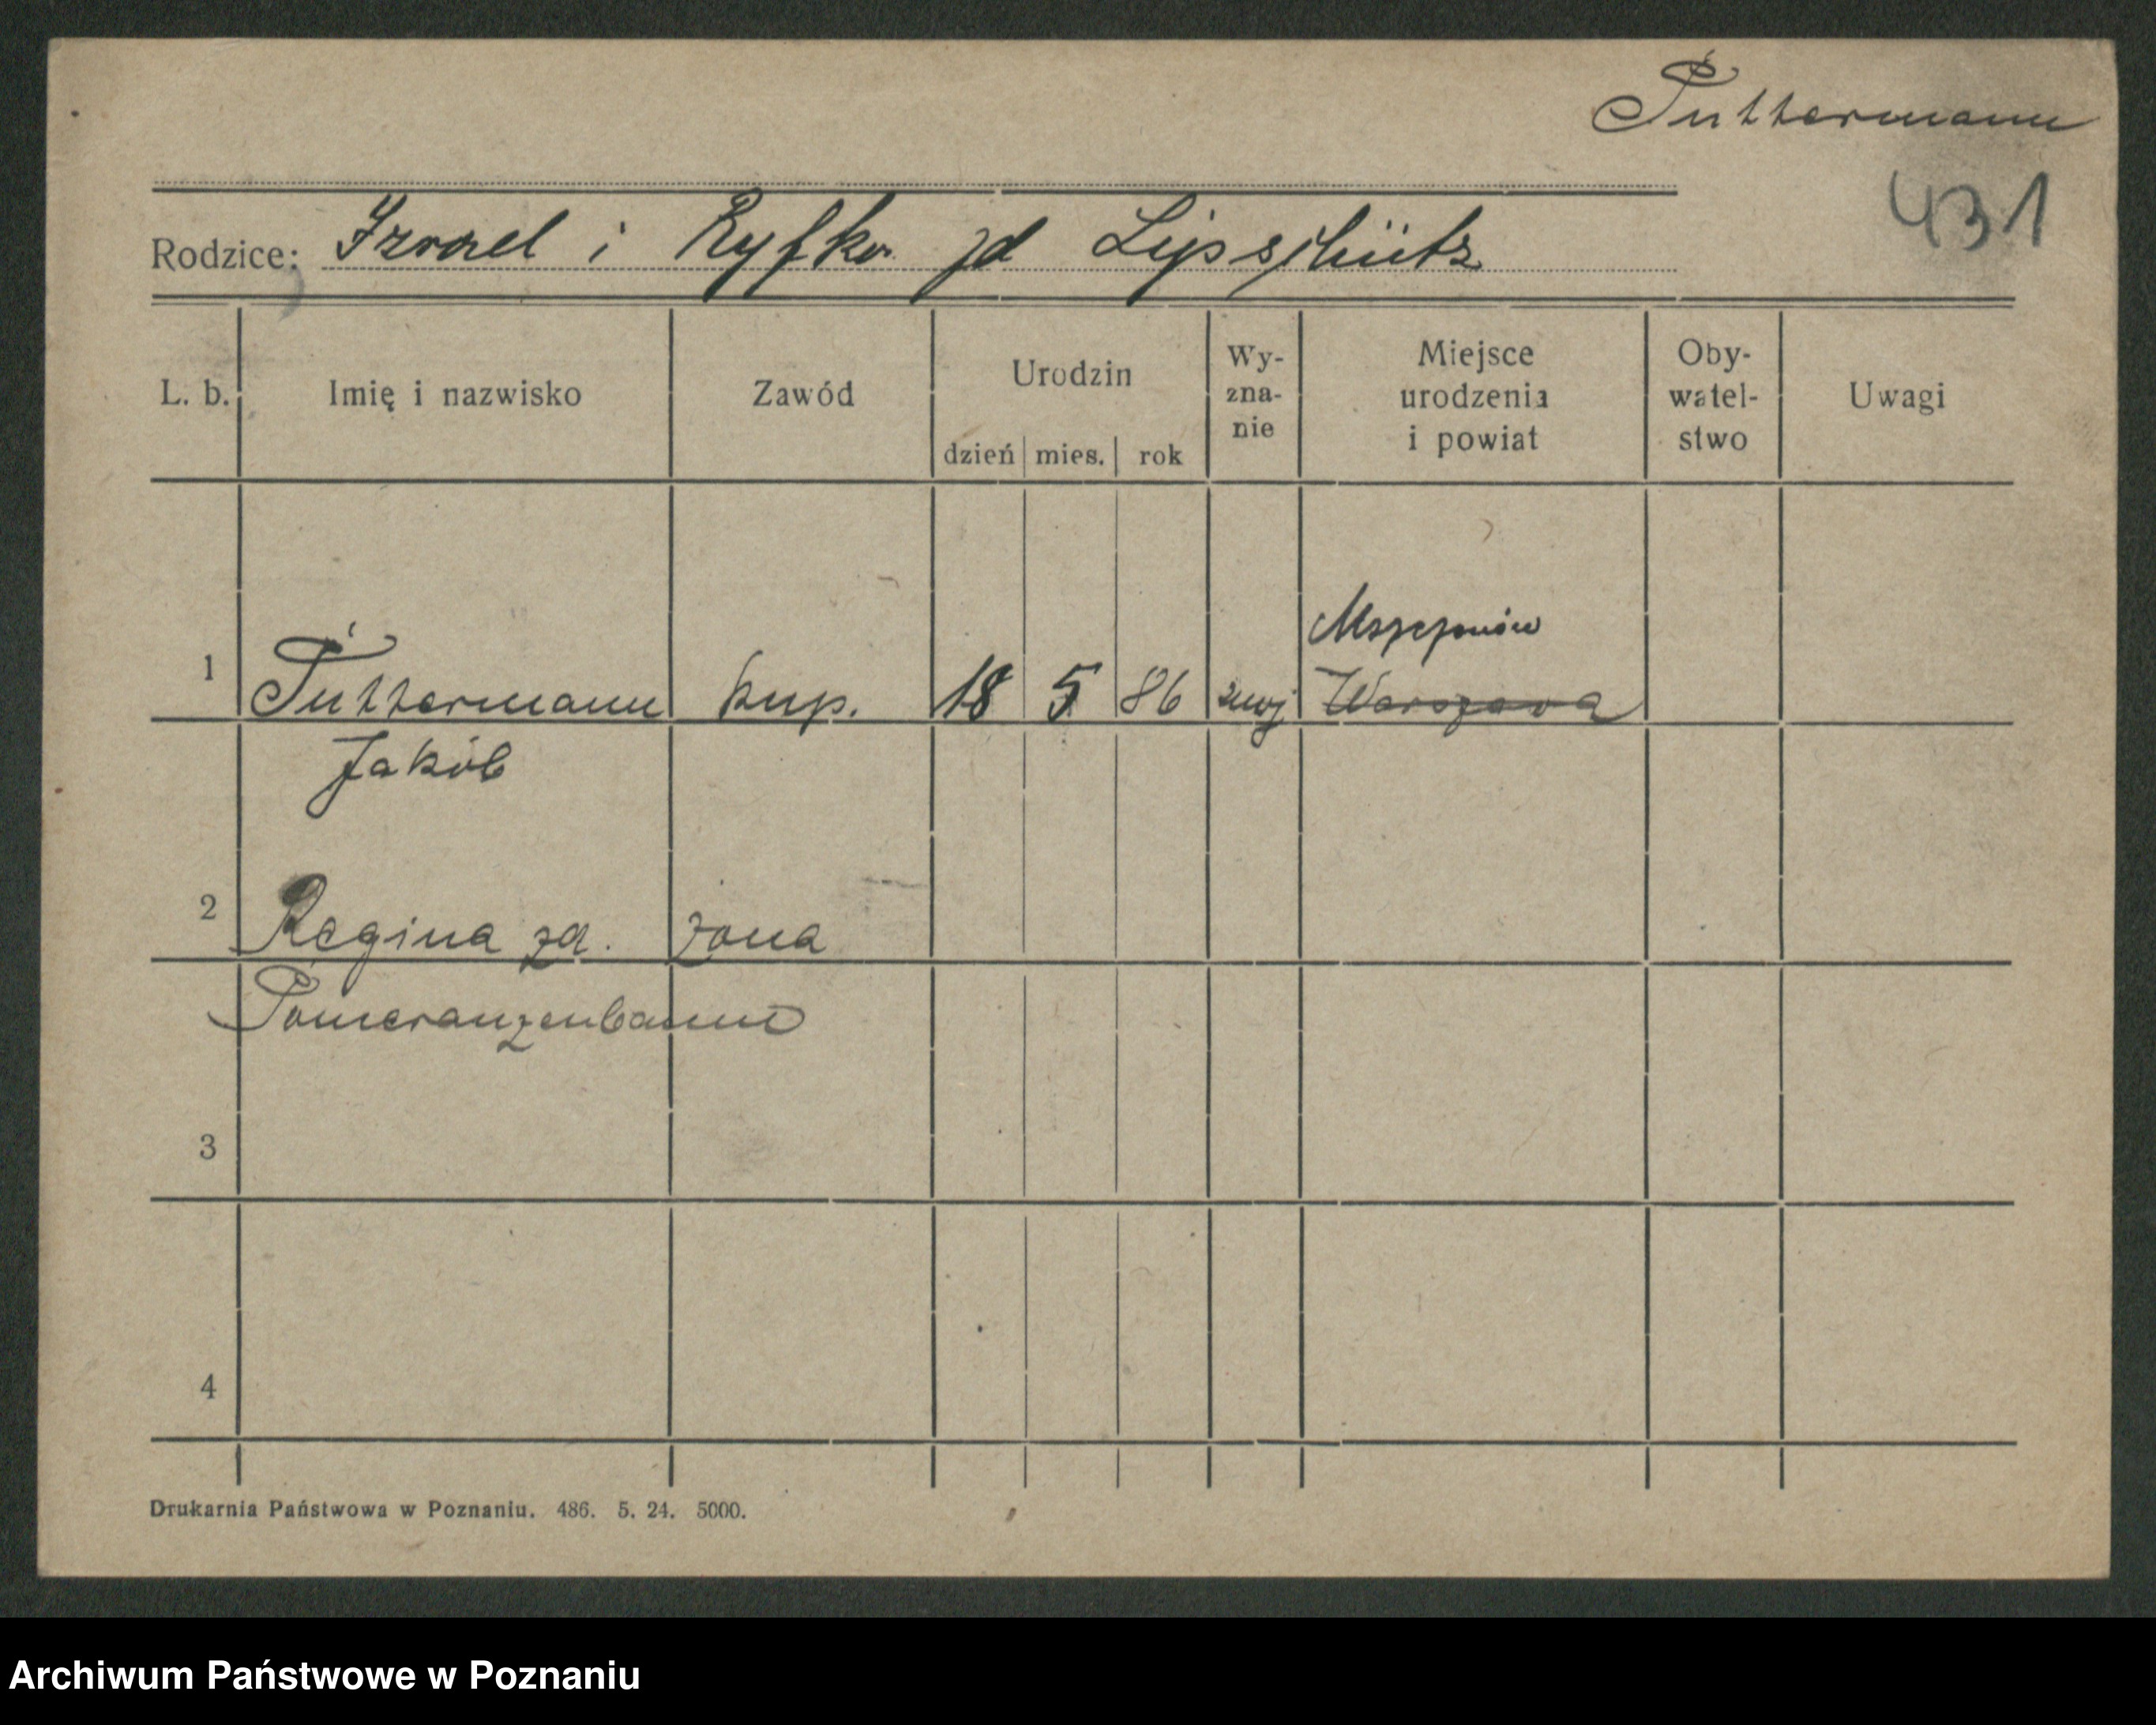 Puttermann
431
Rodzice: Izrael i Ryfka zd Lipszhütz
L. b. Imię i nazwisko Zawód Urodzin dzień mies. rok Wy-zna-nie Miejsce urodzenia i powiat Oby-watel-stwo Uwagi
Mszczonów
1 Puttermann kup. 18 5 86 Warszawa
Jakób
2 Regina zd. żona
Pomeranzenbaum
3
4
Drukarnia Państwowa w Poznaniu. 486. 5. 24. 5000.
Archiwum Państwowe w Poznaniu